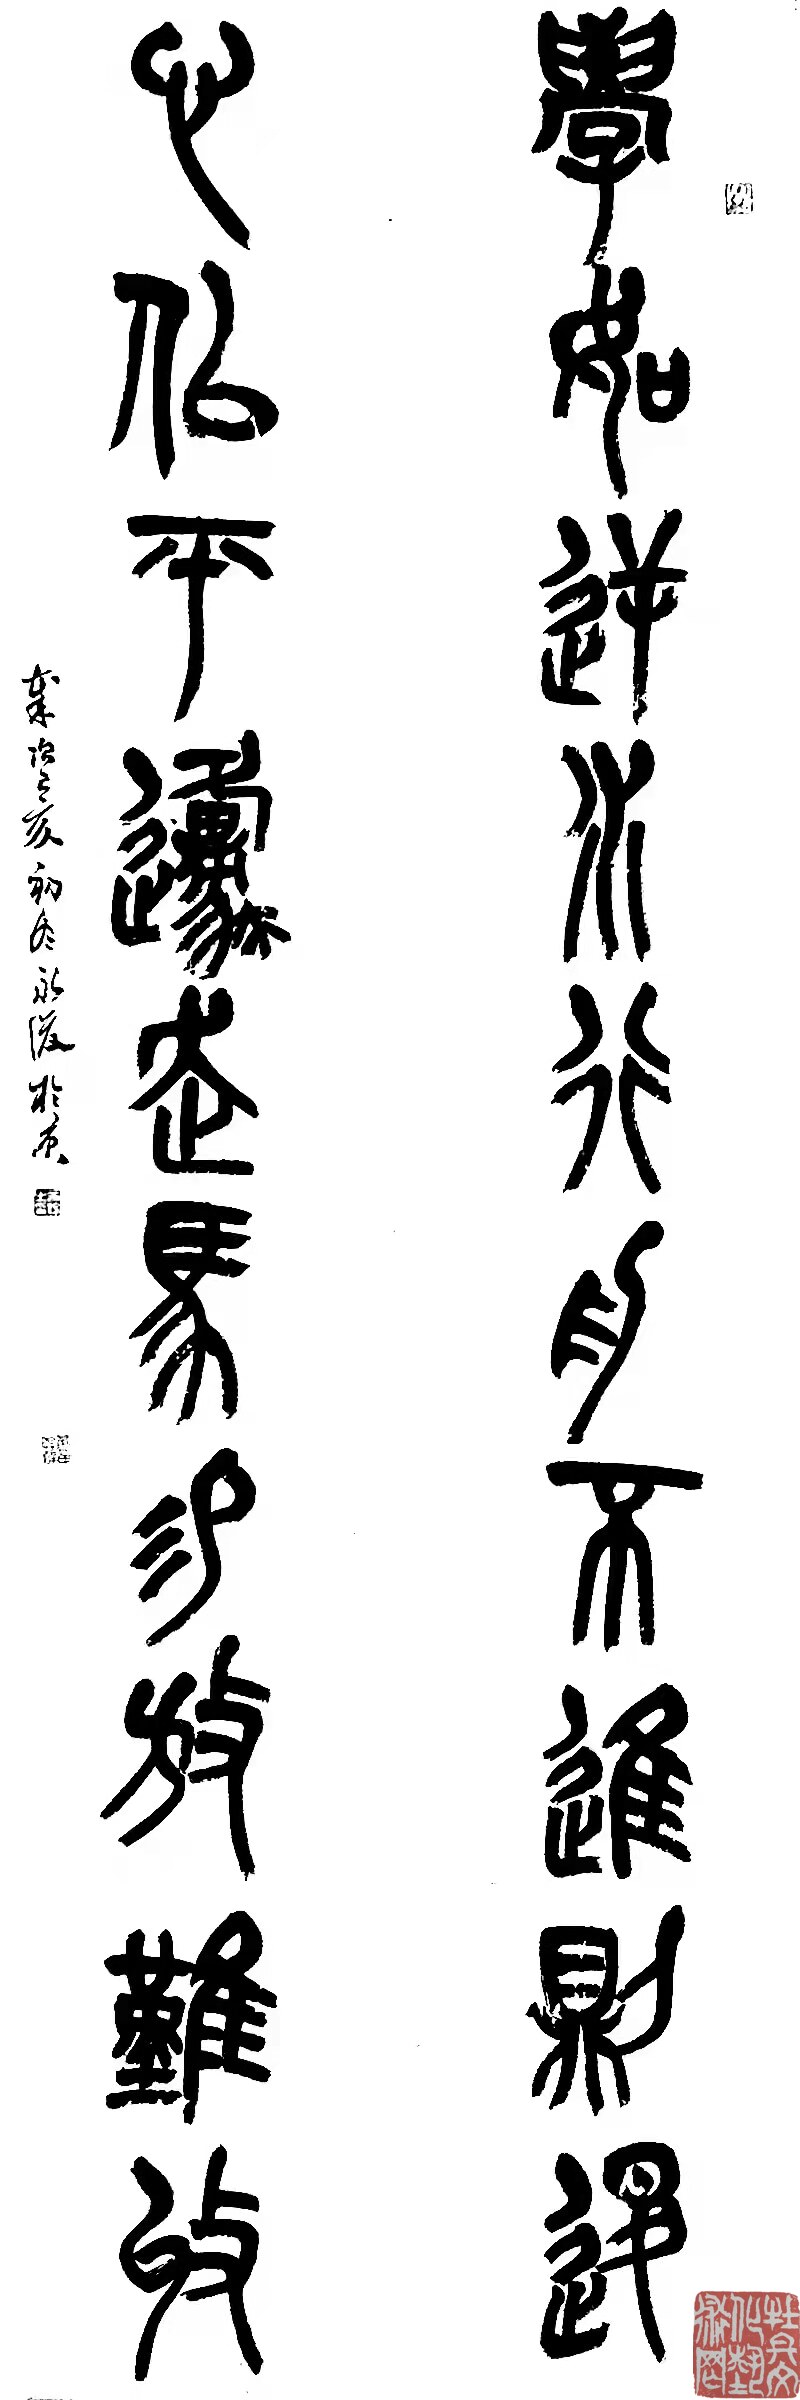 學如逆水行舟不進則退
心似平原走馬易放難收
歲次己亥初冬永於京